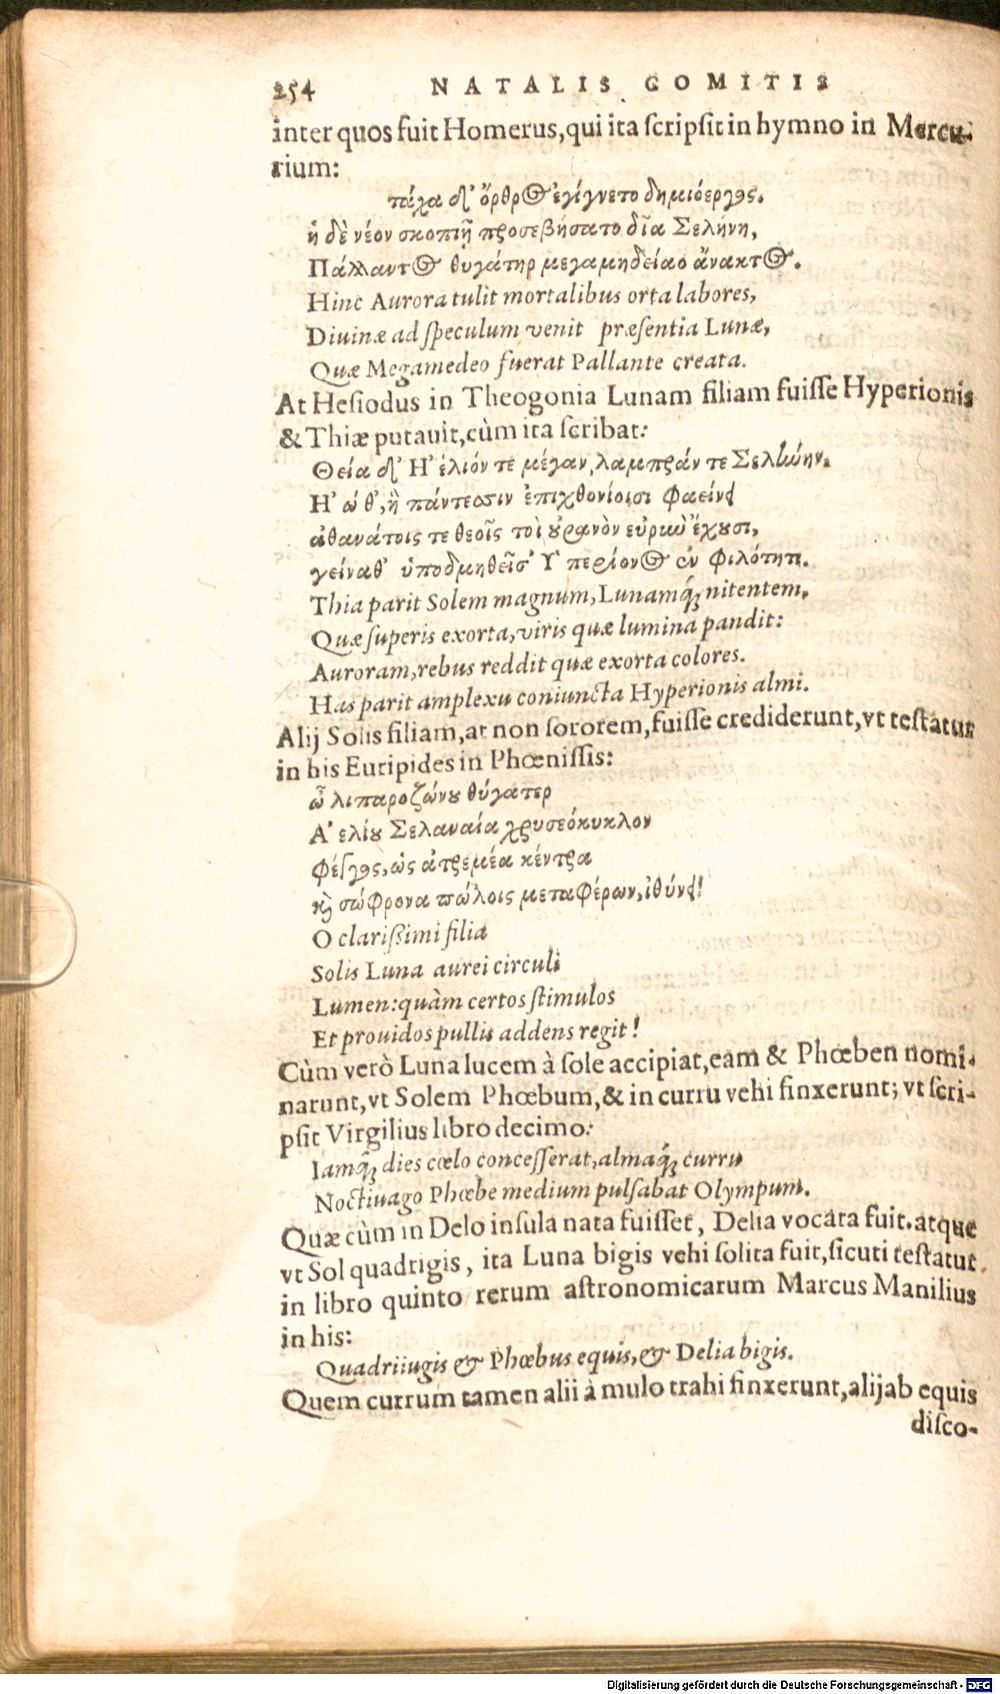 254 NATALIS COMITIS
inter quos fuit Homerus, qui ita scripsit in hymno in Mercu-
rium:
τάχα δ' ὄρθρος ἐγίγνετο δημιόεργος.
ἡ δὲ νέον σκοπιὴ προσεβήσατο δῖα Σελήνη,
Πάλλαντος θυγάτηρ μεγαμηδείαο ἄνακτος.
Hinc Aurora tulit mortalibus orta labores,
Diuinæ ad speculum venit præsentia Lunæ,
Quæ Megamedeo fuerat Pallante creata.
At Hesiodus in Theogonia Lunam filiam fuisse Hyperionis
& Thiæ putauit, cùm ita scribat:
Θεία δ' Ἠέλιόν τε μέγαν, λαμπράν τε Σελήνην.
Ἠώ θ', ἣ πάντεσσιν ἐπιχθονίοισι φαείνει
ἀθανάτοις τε θεοῖς τοὶ οὐρανὸν εὐρὺν ἔχουσι,
γείναθ' ὑποδμηθεῖσ' Ὑπερίονος ἐν φιλότητι.
Thia parit Solem magnum, Lunamq; nitentem.
Quæ superis exorta, viris quæ lumina pandit:
Auroram, rebus reddit quæ exorta colores.
Has parit amplexu coniuncta Hyperionis almi.
Alij Solis filiam, at non sororem, fuisse crediderunt, vt testatur
in his Euripides in Phœnissis:
ὦ λιπαροζώνου θύγατερ
Ἀελίου Σελαναία χρυσεόκυκλον
φέγγος, ὡς ἀτρεμέα κέντρα
καὶ σώφρονα πώλοις μεταφέρων, ἰθύνει!
O clarissimi filia
Solis Luna aurei circuli
Lumen: quàm certos stimulos
Et prouidos pullis addens regit!
Cùm verò Luna lucem à sole accipiat, eam & Phœben nomi-
narunt, vt Solem Phœbum, & in curru vehi finxerunt; vt scri-
psit Virgilius libro decimo:
Iamq; dies cœlo concesserat, almaq; curru
Noctiuago Phœbe medium pulsabat Olympum.
Quæ cùm in Delo insula nata fuisset, Delia vocata fuit. atque
vt Sol quadrigis, ita Luna bigis vehi solita fuit, sicuti testatur
in libro quinto rerum astronomicarum Marcus Manilius
in his:
Quadriiugis & Phœbus equis, & Delia bigis.
Quem currum tamen alii à mulo trahi finxerunt, alij ab equis
disco-
Digitalisierung gefördert durch die Deutsche Forschungsgemeinschaft - DFG